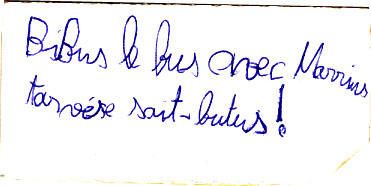 Bibus le bus avec Marrius
tarvére sait-butus!